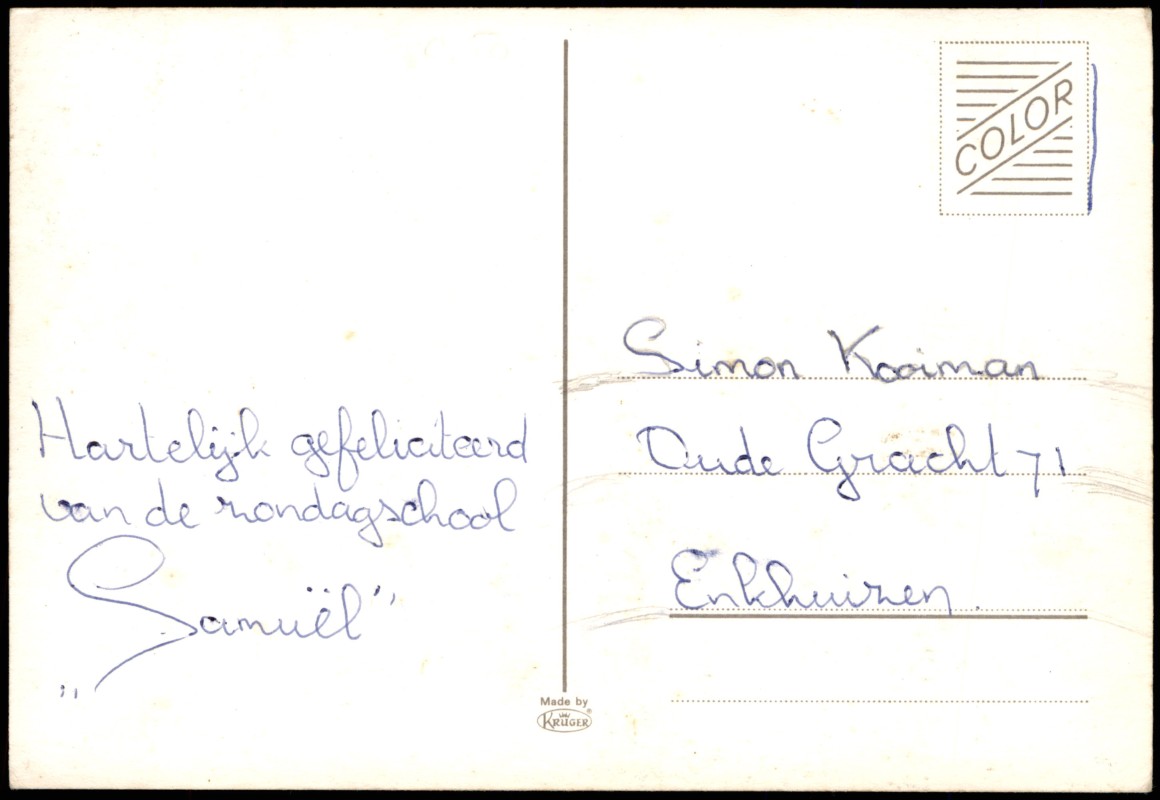 Hartelijk gefeliciteerd
van de zondagschool
„Samuël”
COLOR
Simon Kooiman
Oude Gracht 71
Enkhuizen.
Made by
KRÜGER